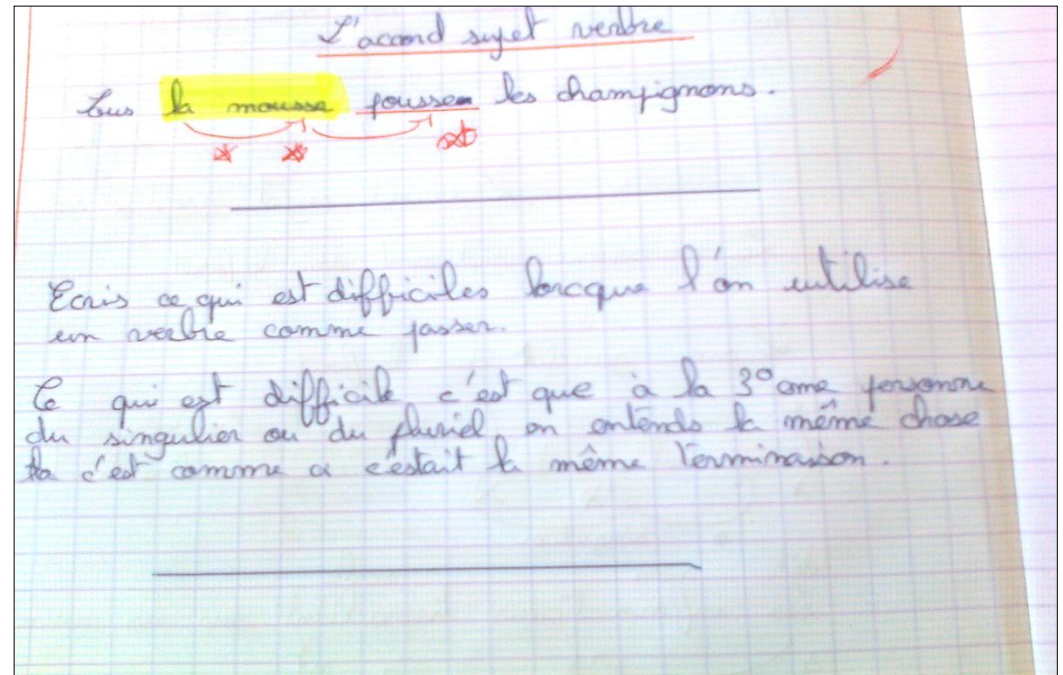 L'accord sujet verbre
la mousse pousse les champignons.
Ecris ce qui est difficiles lorcque l'on utilise
un verbre comme passer.
Ce qui est difficile c'est que à la 3° personne
du singulier ou du pluriel on entends la même chose
c'est comme c'estait la même terminaison.